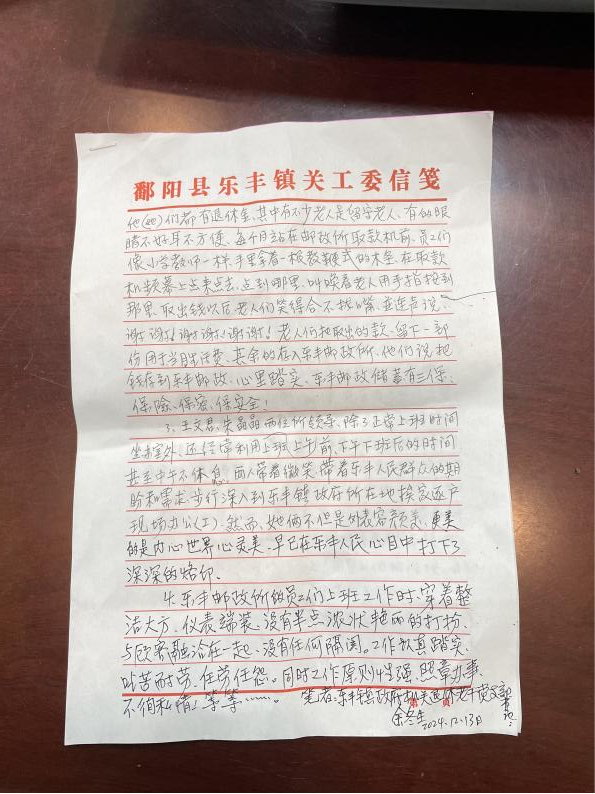 鄱阳县乐丰镇关工委信笺
他(她)们都有退休金,其中有不少老人是留守老人、有的眼
睛不好耳不方便,每个月站在邮政所取款机前,员工们
像小学教师一样手里拿着一根教鞭式的木条,在取款
机按幕上点来点去,点到哪里,叫唤着老人用手指按到
那里,取出钱以后老人们笑得合不拢嘴,在连声说:
谢谢!谢谢!谢谢!老人们把取出的款,留下一部
份用于当月生活费,其余的存入乐丰邮政所,他们说把
钱存到乐丰邮政,心里踏实、乐丰邮政储蓄有三保:
保险、保密、保安全!
3、王文君、吴晶晶两位所领导,除了正常上班时间
坐班室外,还经常利用上班上午前、下午下班后的时间
甚至中午不休息,两人带着微笑,带着乐丰人民群众的期
盼和需求,步行深入到乐丰镇政府所在地挨家逐户
现场办公(工)。然而,她俩不但是外表容颜美,更美
的是内心世界心灵美,早已在乐丰人民心目中打下了
深深的烙印。
4、乐丰邮政所的员工们上班工作时,穿着整
洁大方,仪表端装,没有半点浓状艳丽的打扮,
与顾客融洽在一起,没有任何隔阂。工作认真踏实,
吃苦耐劳,任劳任怨。同时工作原则性强,照章办事
不徇私情,等等……。
笔者:乐丰镇政府机关退休老干党支部书记:
余冬生
2024.12.13日